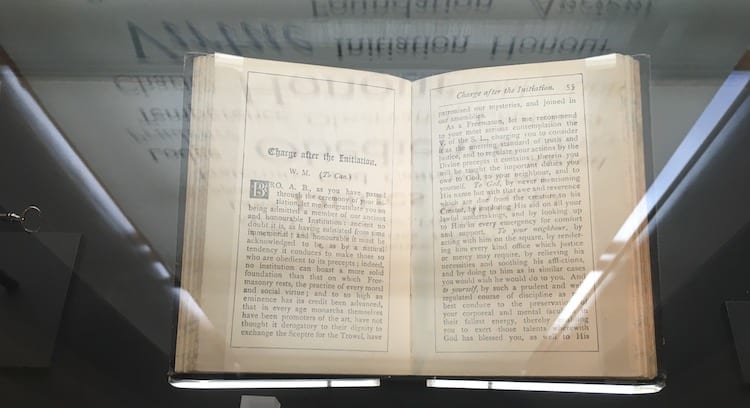 Foundation Ancient
Virtue Initiation Honour
Temperance
Charge after the Initiation.
W. M. (To Can.)
BRO. A. B., as you have passed
through the ceremony of your In-
itiation, let me congratulate you on
being admitted a member of our ancient
and honourable Institution; ancient no
doubt it is, as having subsisted from time
immemorial; and honourable it must be
acknowledged to be, as by a natural
tendency it conduces to make those so
who are obedient to its precepts; indeed,
no institution can boast a more solid
foundation than that on which Free-
masonry rests, the practice of every moral
and social virtue; and to so high an
eminence has its credit been advanced,
that in every age monarchs themselves
have been promoters of the art, have not
thought it derogatory to their dignity to
exchange the Sceptre for the Trowel, have
Charge after the Initiation. 55
patronised our mysteries, and joined in
our assemblies.
As a Freemason, let me recommend
to your most serious contemplation the
V. of the S. L., charging you to consider
it as the unerring standard of truth and
justice, and to regulate your actions by the
Divine precepts it contains; therein you
will be taught the important duties you
owe to God, to your neighbour, and to
yourself. To God, by never mentioning
His name but with that awe and reverence
which are due from the creature to his
Creator, by imploring His aid on all your
lawful undertakings, and by looking up
to Him in every emergency for comfort
and support. To your neighbour, by
acting with him on the square, by render-
ing him every kind office which justice
or mercy may require, by relieving his
necessities and soothing his afflictions,
and by doing to him as in similar cases
you would wish he would do to you. And
to yourself, by such a prudent and well
regulated course of discipline as may
best conduce to the preservation of
your corporeal and mental faculties in
their fullest energy, thereby enabling
you to exert those talents wherewith
God has blessed you, as well to His